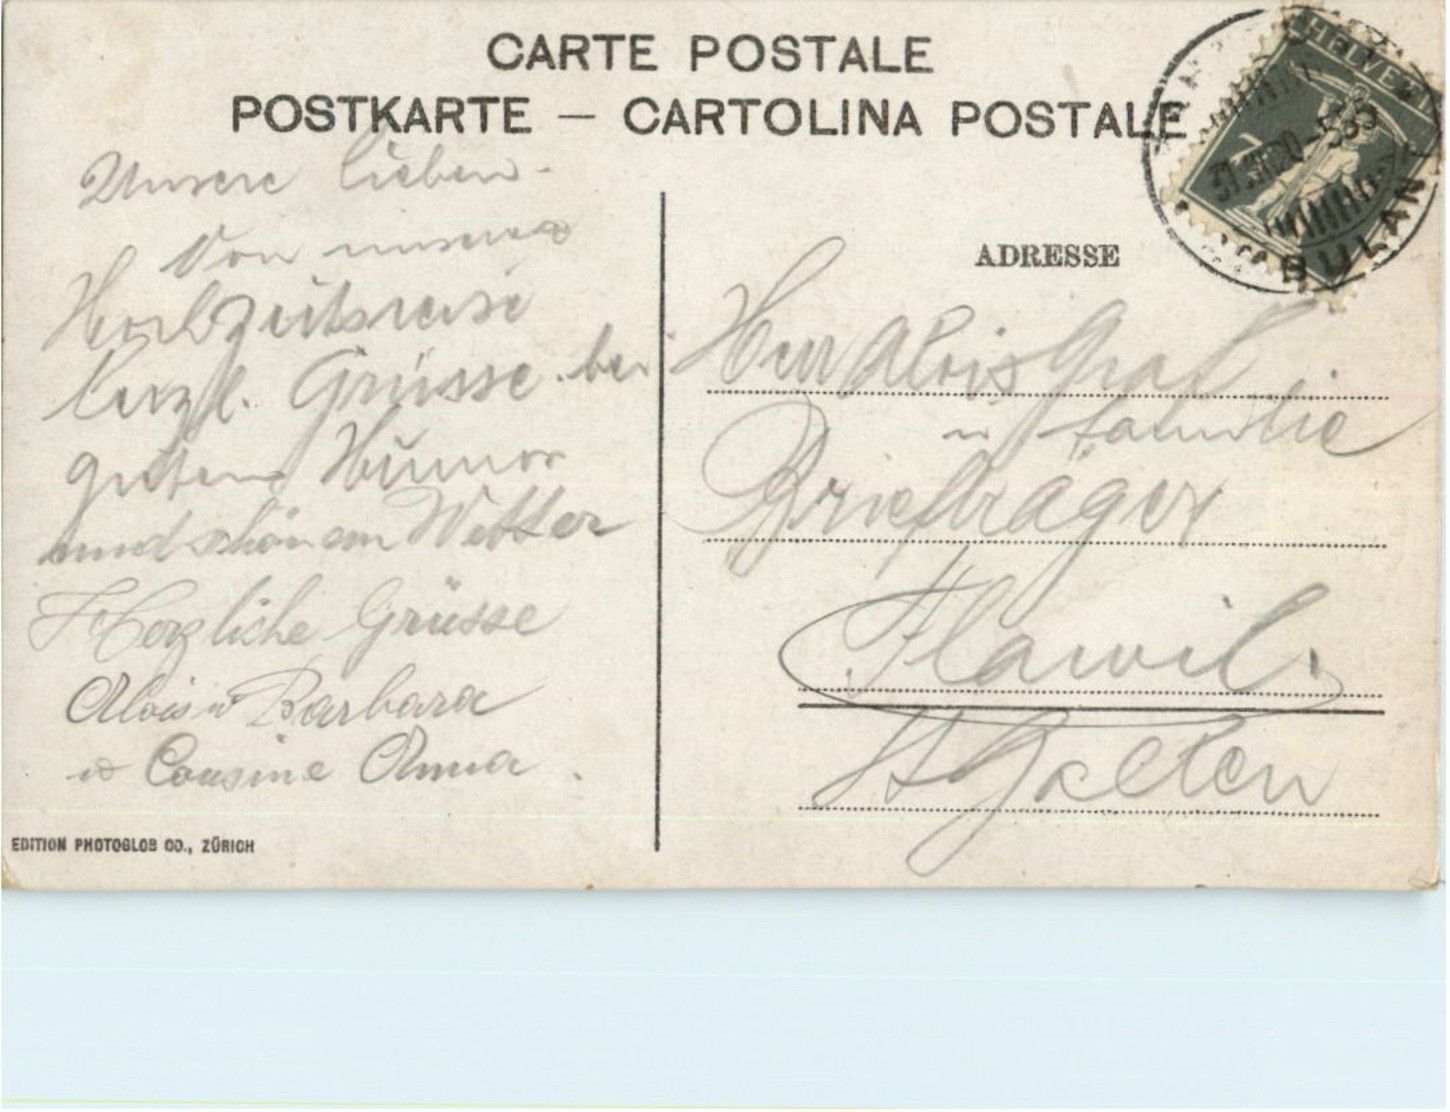 CARTE POSTALE
POSTKARTE — CARTOLINA POSTALE
HELVETIA
BULANT
Unsere lieben.
Von unserer
Hochzeitsreise
herzl. Grüsse bei
gutem Humor
und schönem Wetter
Herzliche Grüsse
Alois u Barbara
u Cousine Anna.
EDITION PHOTOGLOB CO., ZÜRICH
ADRESSE
Herr Alois Graf
u familie
Briefträger
Flawil.
St Gallen